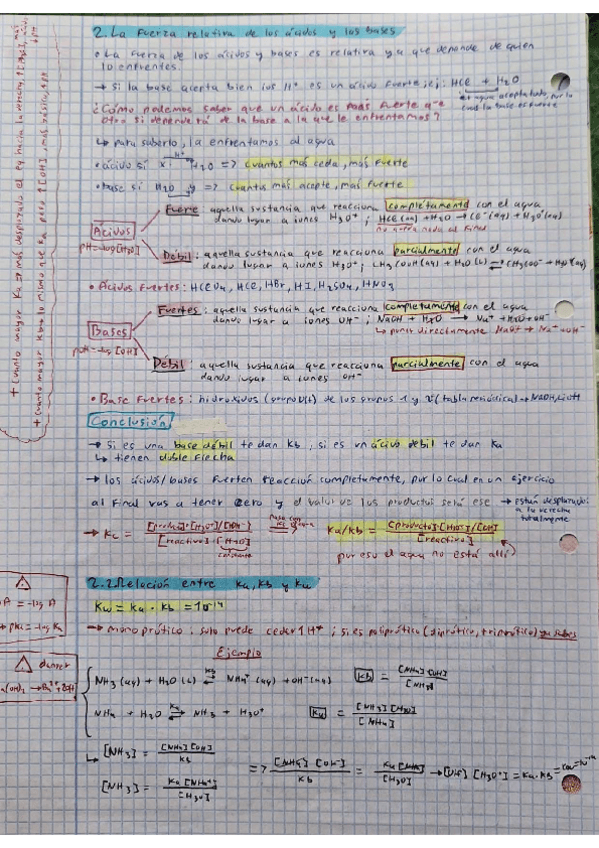 2. La Fuerza relativa de los ácidos y las bases
• La fuerza de los ácidos y bases es relativa ya que depende de quien
lo enfrentes.
→ si la base acepta bien los H⁺ es un ácido fuerte; ej: HCl + H₂O
¿Cómo podemos saber que un ácido es más fuerte que
otro si dependerá de la base a la que le enfrentamos?
↳ para saberlo, la enfrentamos al agua
• ácido si H₂O => cuantos más ceda, más fuerte
• base si H₂O y => cuantos más acepte, más fuerte
Ácidos
pH=-log[H₃O⁺]
Fuerte: aquella sustancia que reacciona completamente con el agua
dando lugar a iones H₃O⁺; HCl(aq) + H₂O → Cl⁻(aq) + H₃O⁺(aq)
no queda nada al final
Débil: aquella sustancia que reacciona parcialmente con el agua
dando lugar a iones H₃O⁺; CH₃COOH(aq) + H₂O(l) ⇌ CH₃COO⁻ + H₃O⁺(aq)
• Ácidos Fuertes: HClO₄, HCl, HBr, HI, H₂SO₄, HNO₃
Bases
pOH=-log[OH⁻]
Fuertes: aquella sustancia que reacciona completamente con el agua
dando lugar a iones OH⁻; NaOH + H₂O → Na⁺ + H₂O + OH⁻
↳ poner directamente NaOH → Na⁺ + OH⁻
Débil: aquella sustancia que reacciona parcialmente con el agua
dando lugar a iones OH⁻
• Base Fuertes: hidróxidos (grupo OH) de los grupos 1 y 2 (tabla periódica) → NaOH, LiOH
Conclusión
→ si es una base débil te dan Kb; si es un ácido débil te dan Ka
↳ tienen doble flecha
→ los ácidos/bases fuerten reacción completamente, por lo cual en un ejercicio
al final vas a tener zero y el valor de los productos será ese → están desplazados
a la derecha
totalmente
→ Kc = [H₃O⁺]/[OH⁻] / [reactivo]·[H₂O] => Ka/Kb = [producto]·[H₃O⁺]/[OH⁻] / [reactivo]
constante
por eso el agua no está allí
2.2 Relación entre Ka, Kb y Kw
Kw = Ka · Kb = 10⁻¹⁴
→ monoprótico: solo puede ceder 1 H⁺; si es poliprótico (diprótico, triprótico)
Ejemplo
NH₃(aq) + H₂O(l) ⇌ NH₄⁺(aq) + OH⁻(aq) Kb = [NH₄][OH] / [NH₃]
NH₄ + H₂O ⇌ NH₃ + H₃O⁺ Ka = [NH₃][H₃O] / [NH₄]
↳ [NH₃] = [NH₄][OH] / Kb
[NH₃] = Ka[NH₄⁺] / [H₃O⁺]
=> [NH₄⁺][OH⁻] / Kb = Ka[NH₄] / [H₃O] → [OH⁻][H₃O⁺] = Ka·Kb
+ cuanto mayor Ka → más desplazado el eq hacia la derecha, ↑[H₃O⁺], más ácido, ↓pH
+ cuanto mayor Kb → lo mismo que Ka pero ↑[OH⁻], más básico, ↑pH
A = -log A
pKa = -log Ka
danger